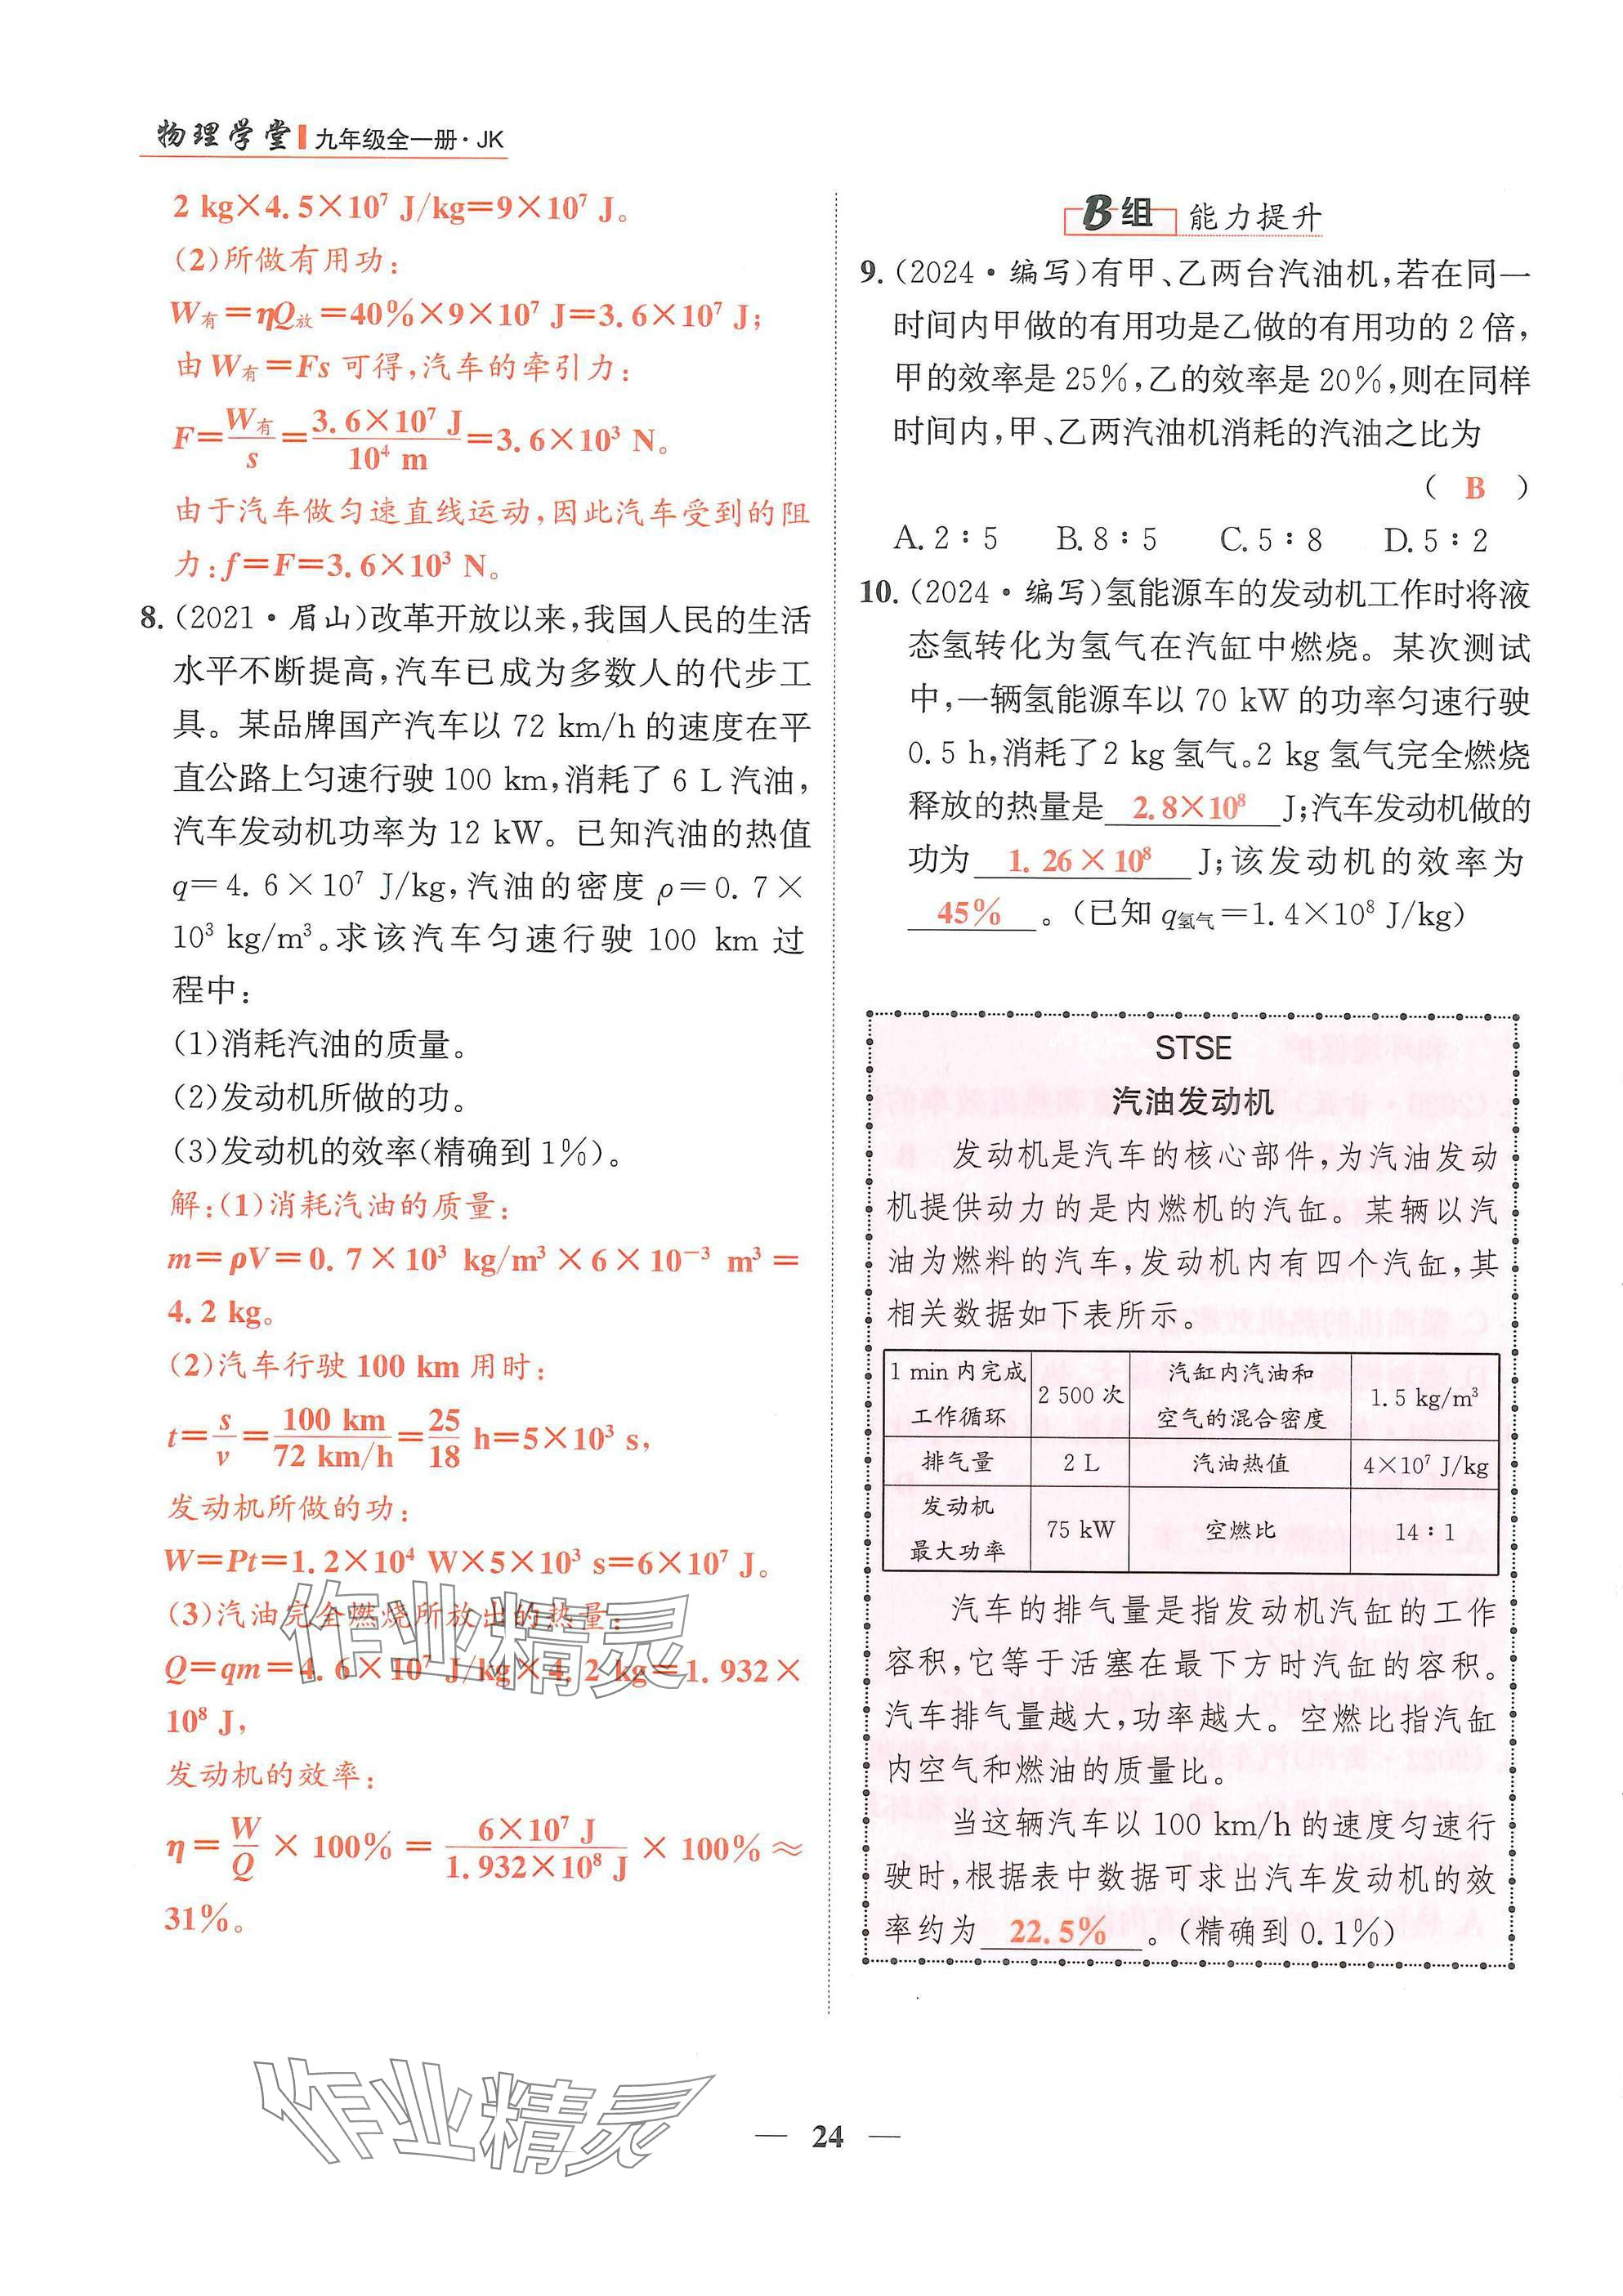 物理学堂 九年级全一册·JK
2 kg×4.5×10⁷ J/kg=9×10⁷ J。
(2)所做有用功:
W有=ηQ放=40%×9×10⁷ J=3.6×10⁷ J;
由W有=Fs可得,汽车的牵引力:
F=W有/s=3.6×10⁷ J/10⁴ m=3.6×10³ N。
由于汽车做匀速直线运动,因此汽车受到的阻
力:f=F=3.6×10³ N。
8.(2021·眉山)改革开放以来,我国人民的生活
水平不断提高,汽车已成为多数人的代步工
具。某品牌国产汽车以 72 km/h 的速度在平
直公路上匀速行驶 100 km,消耗了 6 L 汽油,
汽车发动机功率为 12 kW。已知汽油的热值
q=4.6×10⁷ J/kg,汽油的密度 ρ=0.7×
10³ kg/m³。求该汽车匀速行驶 100 km 过
程中:
(1)消耗汽油的质量。
(2)发动机所做的功。
(3)发动机的效率(精确到1%)。
解:(1)消耗汽油的质量:
m=ρV=0.7×10³ kg/m³×6×10⁻³ m³=
4.2 kg。
(2)汽车行驶 100 km 用时:
t=s/v=100 km/72 km/h=25/18 h=5×10³ s,
发动机所做的功:
W=Pt=1.2×10⁴ W×5×10³ s=6×10⁷ J。
(3)汽油完全燃烧所放出的热量:
Q=qm=4.6×10⁷ J/kg×4.2 kg=1.932×
10⁸ J,
发动机的效率:
η=W/Q×100%=6×10⁷ J/1.932×10⁸ J×100%≈
31%。
作业精灵
作业精灵
B组 能力提升
9.(2024·编写)有甲、乙两台汽油机,若在同一
时间内甲做的有用功是乙做的有用功的 2 倍,
甲的效率是 25%,乙的效率是 20%,则在同样
时间内,甲、乙两汽油机消耗的汽油之比为
( B )
A.2∶5 B.8∶5 C.5∶8 D.5∶2
10.(2024·编写)氢能源车的发动机工作时将液
态氢转化为氢气在汽缸中燃烧。某次测试
中,一辆氢能源车以 70 kW 的功率匀速行驶
0.5 h,消耗了2 kg氢气。2 kg氢气完全燃烧
释放的热量是 2.8×10⁸ J;汽车发动机做的
功为 1.26×10⁸ J;该发动机的效率为
45% 。(已知 q氢气=1.4×10⁸ J/kg)
STSE
汽油发动机
发动机是汽车的核心部件,为汽油发动
机提供动力的是内燃机的汽缸。某辆以汽
油为燃料的汽车,发动机内有四个汽缸,其
相关数据如下表所示。
1 min 内完成工作循环 2 500 次 汽缸内汽油和空气的混合密度 1.5 kg/m³
排气量 2 L 汽油热值 4×10⁷ J/kg
发动机最大功率 75 kW 空燃比 14∶1
汽车的排气量是指发动机汽缸的工作
容积,它等于活塞在最下方时汽缸的容积。
汽车排气量越大,功率越大。空燃比指汽缸
内空气和燃油的质量比。
当这辆汽车以 100 km/h 的速度匀速行
驶时,根据表中数据可求出汽车发动机的效
率约为 22.5% 。(精确到 0.1%)
— 24 —